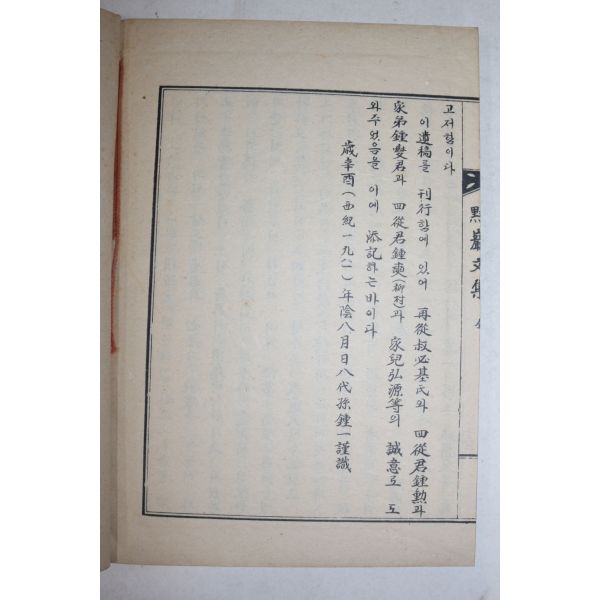 고저함이다
이 遺稿를 刊行함에 있어 再從叔必基氏와 四從君鍾勲과
家弟鍾燮君과 四從君鍾奭(柳村)과 家兒弘源等의 誠意로 도
와주었음을 이에 添記하는바이다
歲辛酉(西紀一九八一)年陰八月日八代孫鍾一謹識
默巖文集